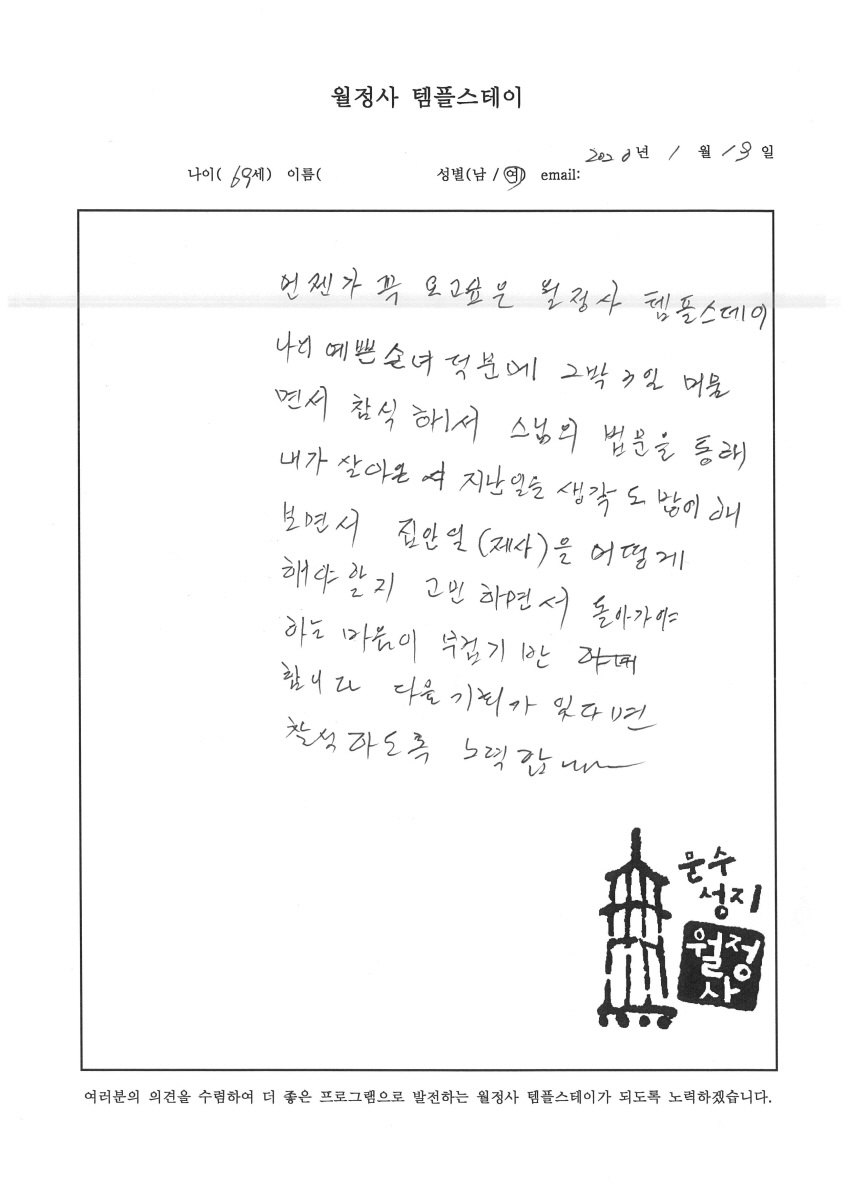 월정사 템플스테이
2020년 1월 13일
나이( 69세) 이름( 성별(남 / 여) email:
언젠가 꼭 오고싶은 월정사 템플스테이
나의 예쁜손녀 덕분에 2박 3일 머물
면서 참석 해서 스님의 법문을 통해
내가 살아온 지난일을 생각도 많이 해
보면서 집안일(제사)을 어떻게
해야 할지 고민 하면서 돌아가야
하는 마음이 무겁기만
합니다 다음기회가 있다면
참석하도록 노력함
문수
성지
월정
사
여러분의 의견을 수렴하여 더 좋은 프로그램으로 발전하는 월정사 템플스테이가 되도록 노력하겠습니다.